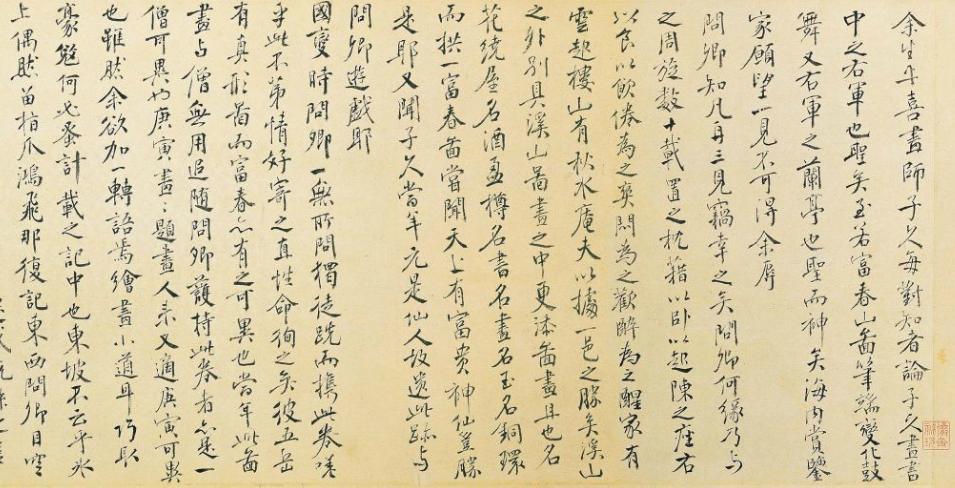 余生平喜畫師子久每對知者論子久畫書
中之右軍也聖矣至若富春山圖筆端變化鼓
舞又右軍之蘭亭也聖而神矣海內賞鑒
家願望一見不可得余辱
問卿知凡再三見竊幸之矣問卿何緣乃與
之周旋數十載置之枕藉以臥以起陳之座右
以食以飲倦為之爽悶為之歡醉為之醒家有
雲起樓山有秋水庵夫以據一邑之勝矣溪山
之外別具溪山圖畫之中更添圖畫且也名
花繞屋名酒盈樽名書名畫名玉名銅環
而拱一富春圖嘗聞天上有富貴神仙豈勝
是耶又聞子久當年元是仙人故遺此跡与
問卿遊戲耶
國變時問卿一無所問獨徒跣而攜此卷嗟
乎此不第情好寄之直性命徇之矣彼五岳
有真形圖而富春亦有之可異也當年此圖
畫与僧無用追隨問卿護持此卷者亦是一
僧可異也庚寅畫々題畫人來又適庚寅可異
也雖然余欲加一轉語焉繪畫小道耳巧取
豪敓何必蚤計載之記中也東坡不云乎氷
上偶然留指爪鴻飛那復記東西問卿目空